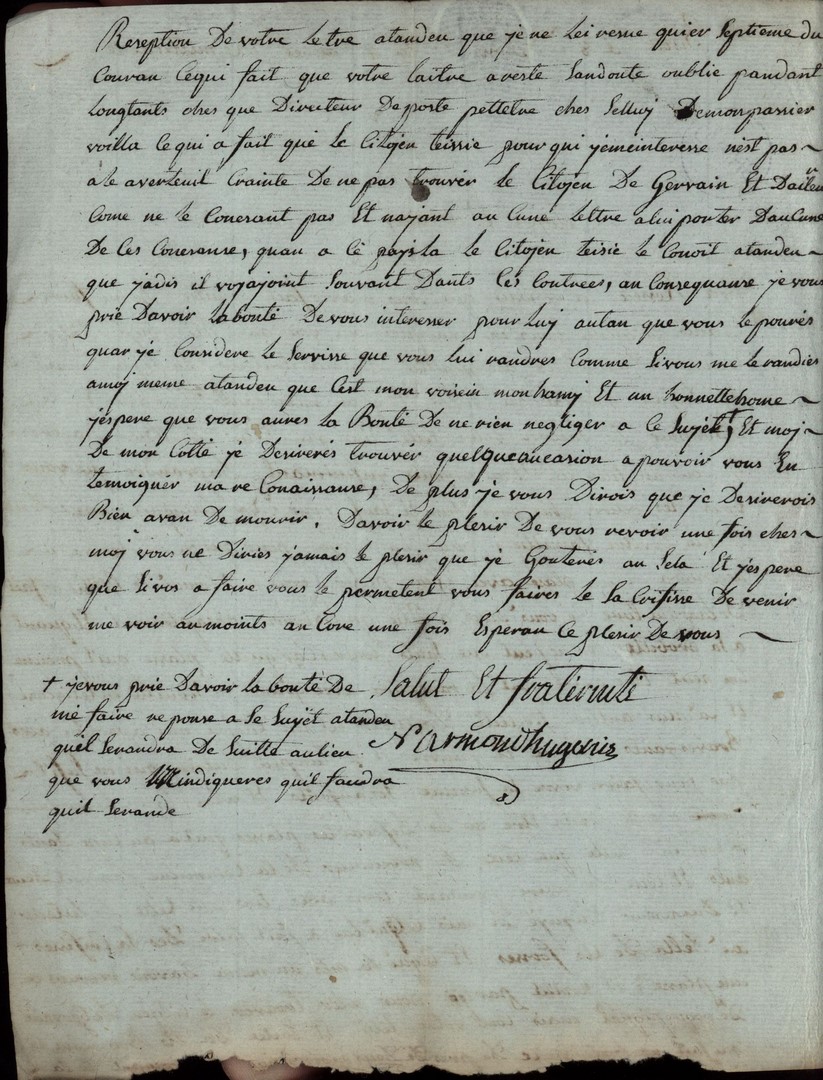 Reseption De votre Letre atanden que je ne Lei resue quier Septieme du
Couran Cequi fait que votre laitre a resté Sandoute oublie pandant
Longtants ches que Directeur De poste pettetre chesSelluy Demonpassier
voilla Ce qui a fait que Le Citojen teissie pour qui jemeinteresse nest pas
ale averteuil Crainte De ne pas trouvér le Citojen De Gervain Et Dailleur
Come ne le Conesant pas Et najant au Cune Lettre alui porter DauCune
De Ces Conesanse, quan a Ce paysla Le Citojen teisie Le Conoit atanden
que jadis il vojajoint Souvant Dants Ces Contrees, an Consequanse je vous
prie Davoir Labonté De vous interesser pour Luy autan que vous Le pourés
quar je Considere le Servisse que vous Lui randres Comme Si vous me le randies
amoj meme atanden que Cest mon voisin monhamj Et un honnettehome
jespere que vous aures La Bonté De ne rien negliger a Ce Sujét, Et moj
De mon Cotté je Desirerés trouvér quelqueaucasion a pouvoir vous En
temoiquér ma re Conaissanse, De plus je vous Dirois que je Desirerois
Bien avan De mourir, Davoir Le plesir De vous revoir une fois ches
moj vous ne Diries jamais Le plesir que je Gouterés au Sela Et jespere
que Si vos a faire vous le permetent vous faires le Sa Crifisse De venir
me voir aumoints an Core une fois Esperan Ce plesir De vous
Salut Et fraternité
+ je vous prie Davoir La bonté De
me faire reponse a Se Sujét atanden
quél Serandra De Suitte aulieu
que vous Mindiqueres quil faudra
quil Serande